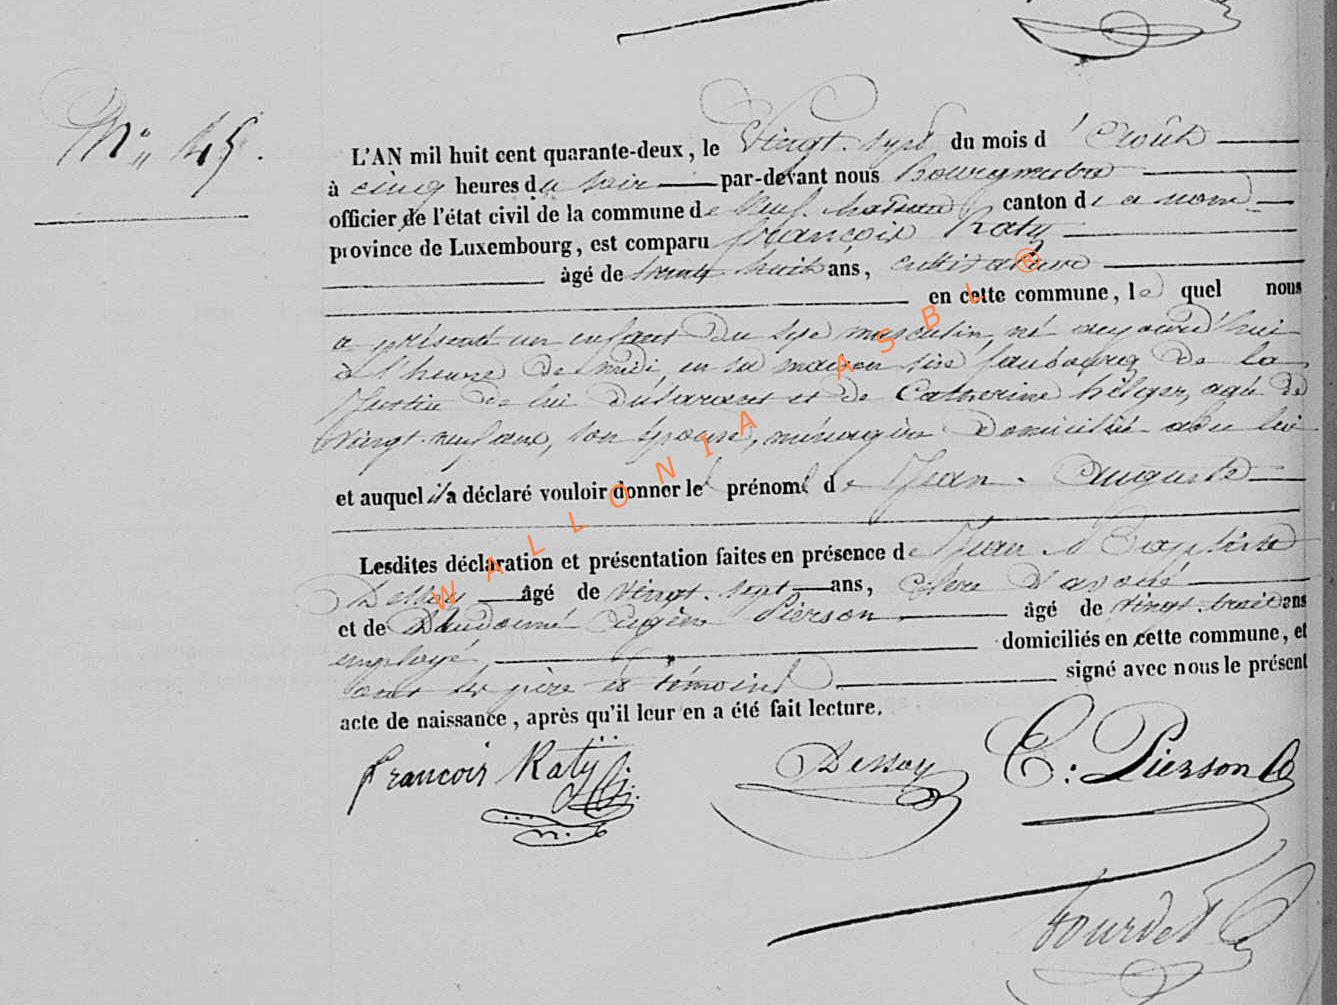 N° 45.
L'AN mil huit cent quarante-deux, le Vingt-sept du mois d'Août
à cinq heures du soir par-devant nous Bourgmestre
officier de l'état civil de la commune de canton de ce nom
province de Luxembourg, est comparu François Katy
âgé de trente huit ans, cultivateur
en cette commune, lequel nous
a présenté un enfant du sexe masculin, né aujourd'hui
à l'heure de midi, en sa maison sise faubourg de la
de lui déclarant et de Catherine hilger, agée de
Vingt-neuf ans, son épouse, ménagère domiciliée avec lui
et auquel il a déclaré vouloir donner le prénom de Jean-Auguste
Lesdites déclaration et présentation faites en présence de Jean B Baptiste
Dessoy âgé de Vingt-sept ans, Clerc d'avoué
et de Dieudonné Eugène Pierson âgé de Vingt-trois ans
employé, domiciliés en cette commune, et
ont les père et témoins signé avec nous le présent
acte de naissance, après qu'il leur en a été fait lecture.
francoir Katÿ Dessoy E: Pierson
tourdet
WALLONIA ASBL ®